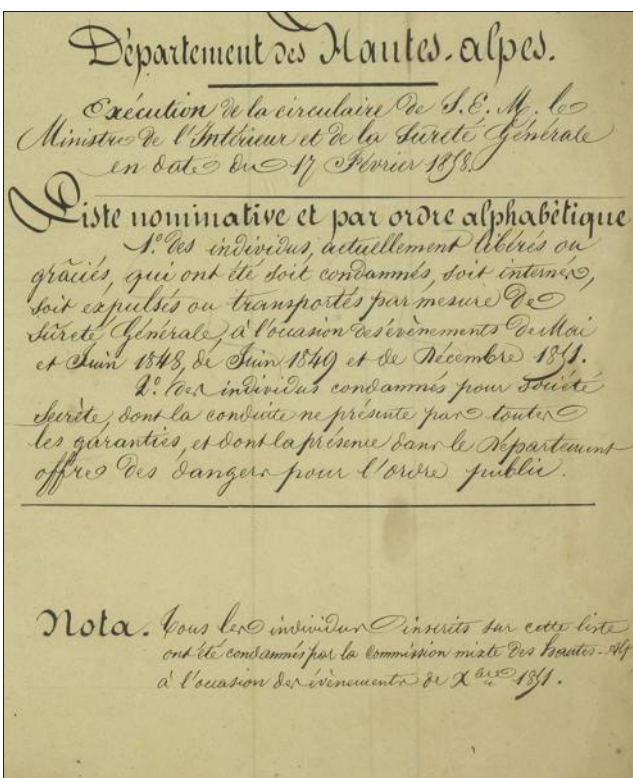 Département des Hautes-alpes.
Exécution de la circulaire de S. E. M. le
Ministre de l'Intérieur et de la Sureté Générale
en date du 17 Février 1858.
Liste nominative et par ordre alphabètique
1.° des individus, actuellement libérés ou
grâciés, qui ont été soit condamnés, soit internés,
soit expulsés ou transportés par mesure de
Sureté Générale, à l'occasion des évènements de Mai
et Juin 1848, de Juin 1849 et de Décembre 1851.
2.° des individus condamnés pour société
secrète, dont la conduite ne présente pas toutes
les garanties, et dont la présence dans le Département
offre des dangers pour l'ordre public.
Nota. Tous les individus inscrits sur cette liste
ont été condamnés par la Commission mixte des hautes-Alp
à l'occasion des évènements de Xbre 1851.